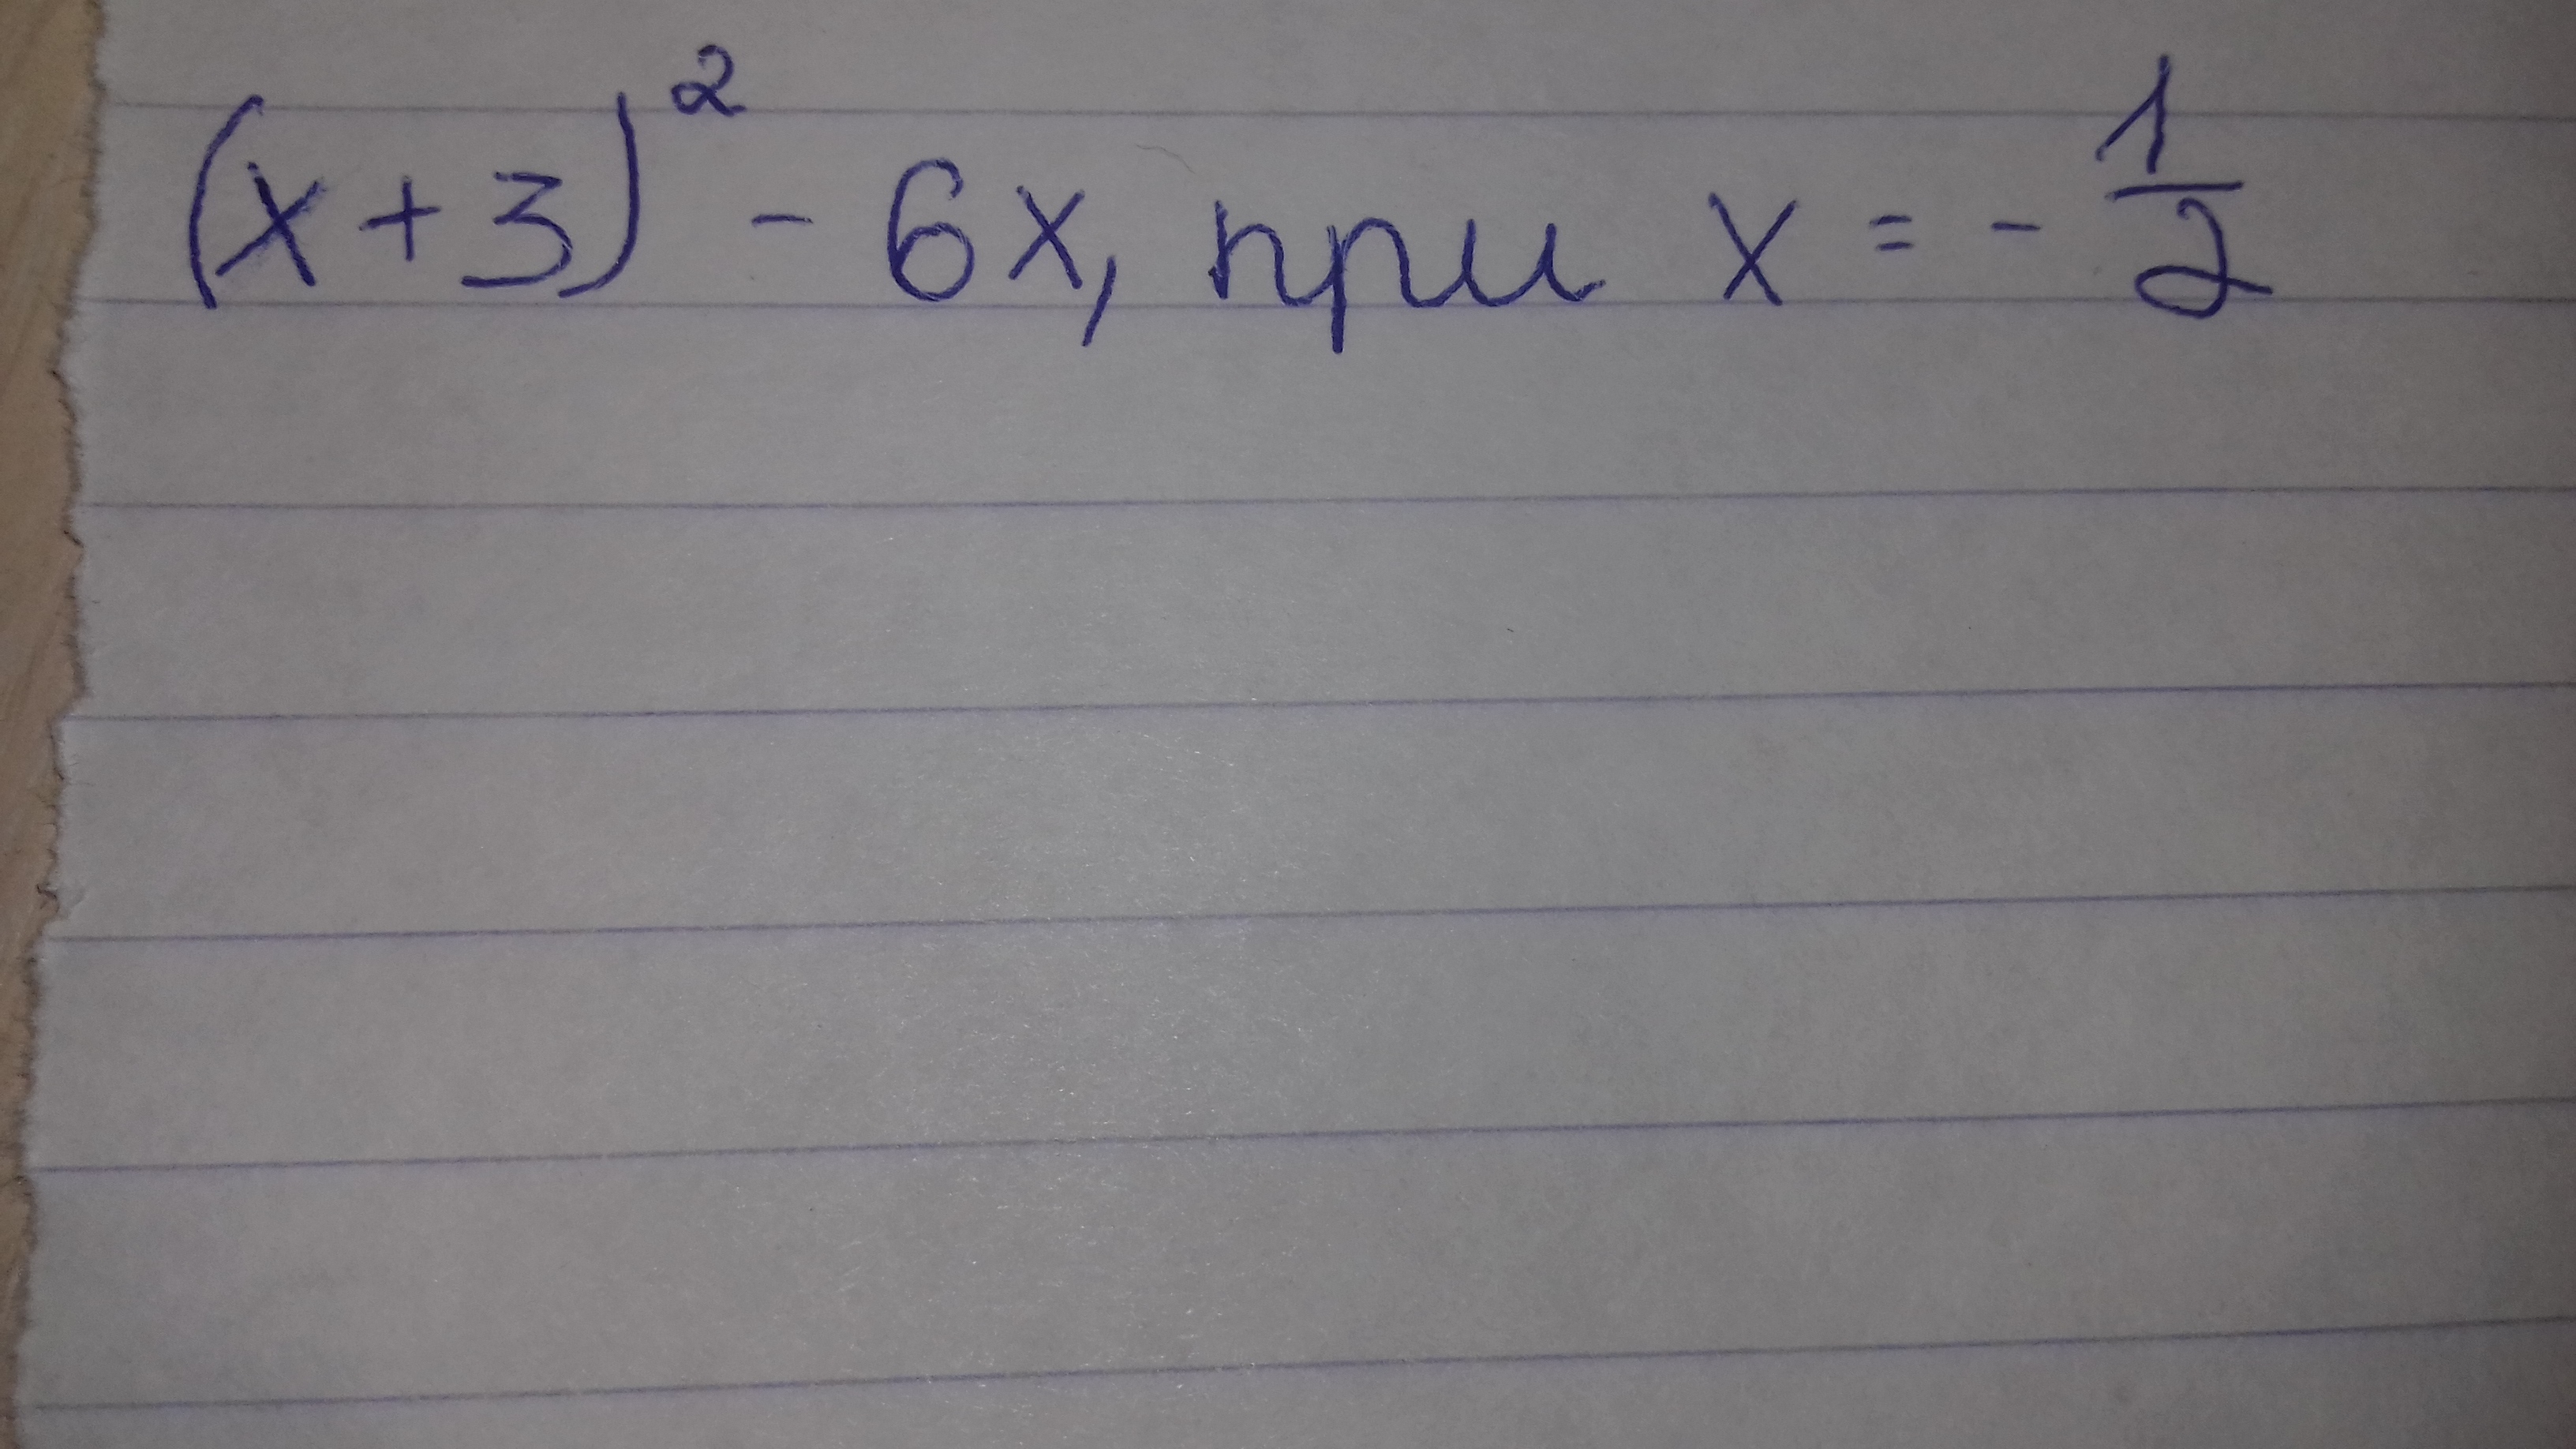 (x+3)² - 6x, при x = - 1/2